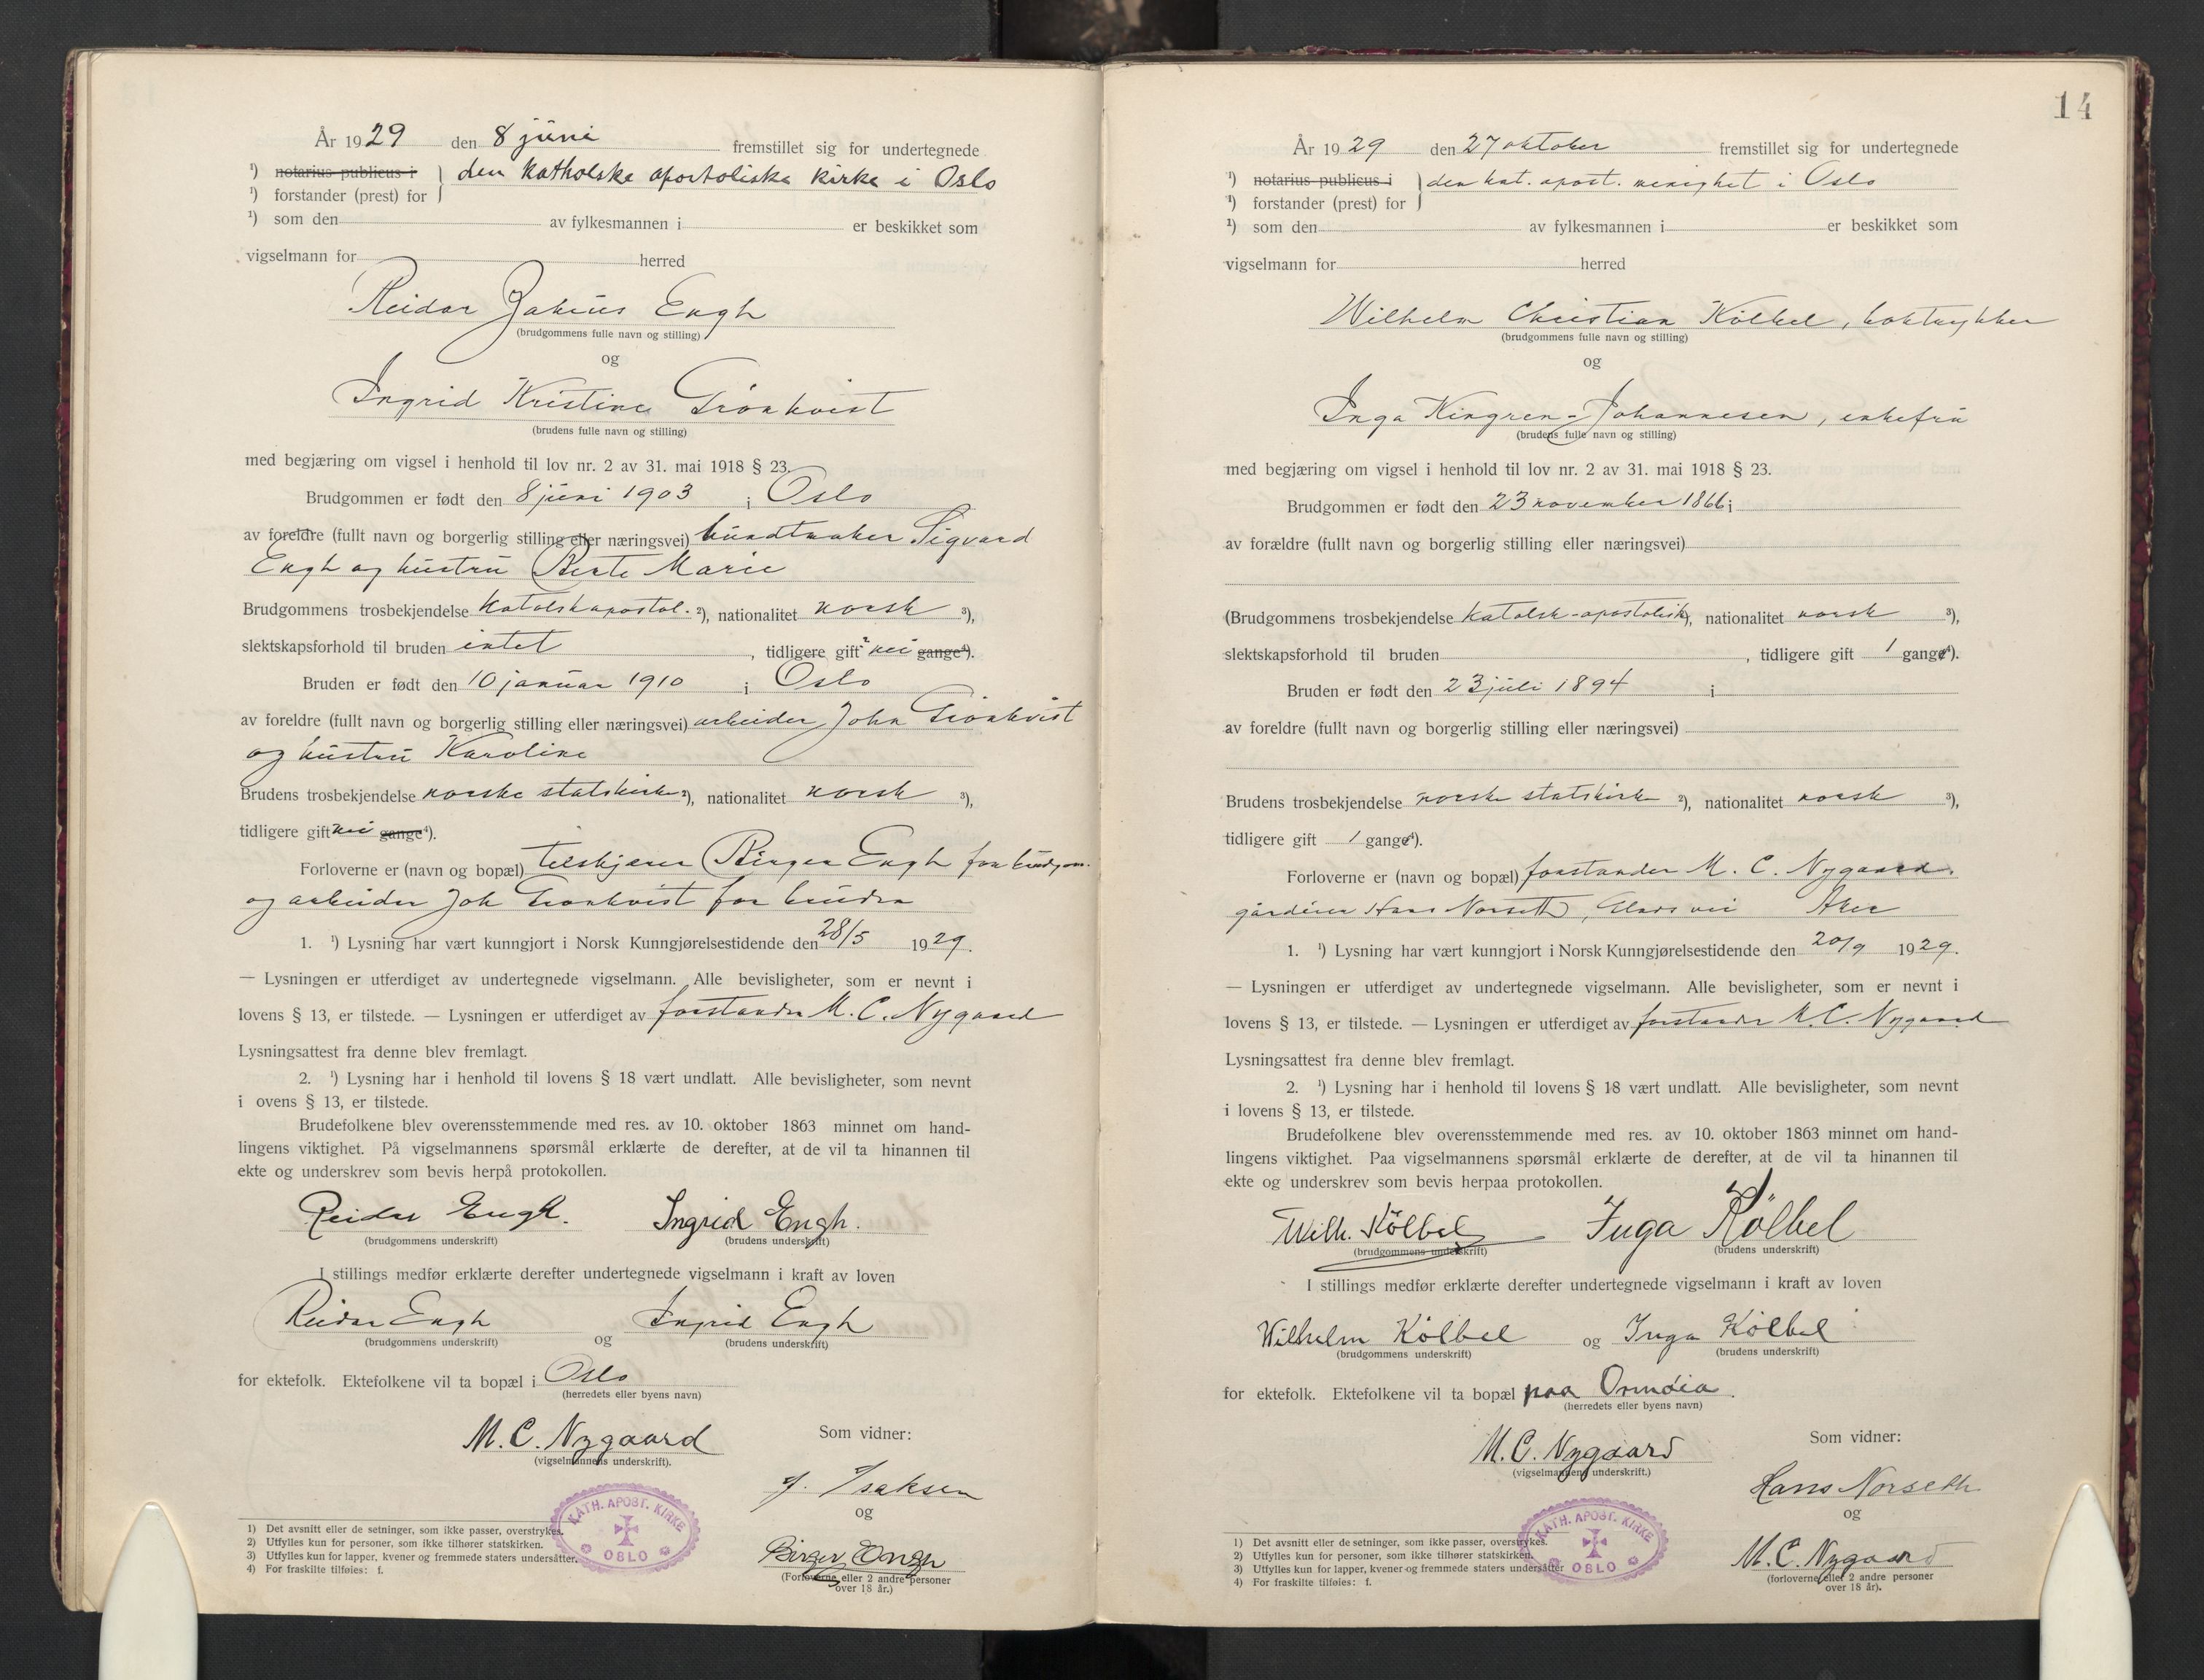 År 1929 den 8 juni fremstillet sig for undertegnede
¹) notarius publicus i } den katholske apostoliske kirke i Oslo
¹) forstander (prest) for
¹) som den av fylkesmannen i er beskikket som
vigselmann for herred
Reidar Engh
(brudgommens fulle navn og stilling)
og
Ingrid Kristine Grönkvist
(brudens fulle navn og stilling)
med begjæring om vigsel i henhold til lov nr. 2 av 31. mai 1918 § 23.
Brudgommen er født den 8 juni 1903 i Oslo
av foreldre (fullt navn og borgerlig stilling eller næringsvei) Sigvard
Engh og hustru Berte Marie
Brudgommens trosbekjendelse Katolsk apostol. ²), nationalitet norsk ³),
slektskapsforhold til bruden intet , tidligere gift nei gange⁴).
Bruden er født den 10 januar 1910 i Oslo
av foreldre (fullt navn og borgerlig stilling eller næringsvei) arbeider John Grönkvist
og hustru Karoline
Brudens trosbekjendelse norske statskirke ²), nationalitet norsk ³),
tidligere gift nei gange⁴).
Forloverne er (navn og bopæl) Birger Engh for brudgom.
og arbeider Joh Grönkvist for bruden
1. ¹) Lysning har vært kunngjort i Norsk Kunngjørelsestidende den 28/5 1929.
— Lysningen er utferdiget av undertegnede vigselmann. Alle bevisligheter, som er nevnt i
lovens § 13, er tilstede. — Lysningen er utferdiget av forstander M. C. Nygaard
Lysningsattest fra denne blev fremlagt.
2. ¹) Lysning har i henhold til lovens § 18 vært undlatt. Alle bevisligheter, som nevnt
i ovens § 13, er tilstede.
Brudefolkene blev overensstemmende med res. av 10. oktober 1863 minnet om hand-
lingens viktighet. På vigselmannens spørsmål erklærte de derefter, at de vil ta hinannen til
ekte og underskrev som bevis herpå protokollen.
Reidar Engh. Ingrid Engh.
(brudgommens underskrift) (brudens underskrift)
I stillings medfør erklærte derefter undertegnede vigselmann i kraft av loven
Reidar Engh og Ingrid Engh
(brudgommens underskrift) (brudens underskrift)
for ektefolk. Ektefolkene vil ta bopæl i Oslo
(herredets eller byens navn)
M. C. Nygaard
(vigselmannens underskrift).
Som vidner:
J. Isaksen
og
Birger Engh
(Forloverne eller 2 andre personer
over 18 år.)
KATH. APOST. KIRKE
OSLO
1) Det avsnitt eller de setninger, som ikke passer, overstrykes.
2) Utfylles kun for personer, som ikke tilhører statskirken.
3) Utfylles kun for lapper, kvener og fremmede staters undersåtter.
4) For fraskilte tilføies: f.
14
År 1929 den 27 oktober fremstillet sig for undertegnede
¹) notarius publicus i } den kat. apost. menighet i Oslo
¹) forstander (prest) for
¹) som den av fylkesmannen i er beskikket som
vigselmann for herred
Wilhelm Christian Kölbel, boktrykker
(brudgommens fulle navn og stilling)
og
Inga Kingren-Johannesen, enkefru
(brudens fulle navn og stilling)
med begjæring om vigsel i henhold til lov nr. 2 av 31. mai 1918 § 23.
Brudgommen er født den 23 november 1866 i
av forældre (fullt navn og borgerlig stilling eller næringsvei)
(Brudgommens trosbekjendelse Katolsk-apostolisk ²), nationalitet norsk ³),
slektskapsforhold til bruden , tidligere gift 1 gange⁴).
Bruden er født den 23 juli 1894 i
av foreldre (fullt navn og borgerlig stilling eller næringsvei)
Brudens trosbekjendelse norske statskirke ²), nationalitet norsk ³),
tidligere gift 1 gange⁴).
Forloverne er (navn og bopæl) forstander M. C. Nygaard.
gårdeier Hans Norseth, vei Aker
1. ¹) Lysning har vært kunngjort i Norsk Kunngjørelsestidende den 20/9 1929.
— Lysningen er utferdiget av undertegnede vigselmann. Alle bevisligheter, som er nevnt i
lovens § 13, er tilstede. — Lysningen er utferdiget av forstander M. C. Nygaard
Lysningsattest fra denne blev fremlagt.
2. ¹) Lysning har i henhold til lovens § 18 vært undlatt. Alle bevisligheter, som nevnt
i lovens § 13, er tilstede.
Brudefolkene blev overensstemmende med res. av 10. oktober 1863 minnet om hand-
lingens viktighet. Paa vigselmannens spørsmål erklærte de derefter, at de vil ta hinannen til
ekte og underskrev som bevis herpaa protokollen.
Wilh. Kölbel Inga Kölbel
(brudgommens underskrift) (brudens underskrift)
I stillings medfør erklærte derefter undertegnede vigselmann i kraft av loven
Wilhelm Kölbel og Inga Kölbel
(brudgommens underskrift) (brudens underskrift)
for ektefolk. Ektefolkene vil ta bopæl paa Ormöia.
(herredets eller byens navn)
M. C. Nygaard
(vigselmannens underskrift.)
Som vidner:
Hans Norseth
og
M. C. Nygaard
(forloverne eller 2 andre personer
over 18 år).
KATH. APOST. KIRKE
OSLO
1) Det avsnitt eller de setninger, som ikke passer, overstrykes.
2) Utfylles kun for personer, som ikke tilhører statskirken.
3) Utfylles kun for lapper, kvener og fremmede staters undersåtter
4) For fraskilte tilføies: f.